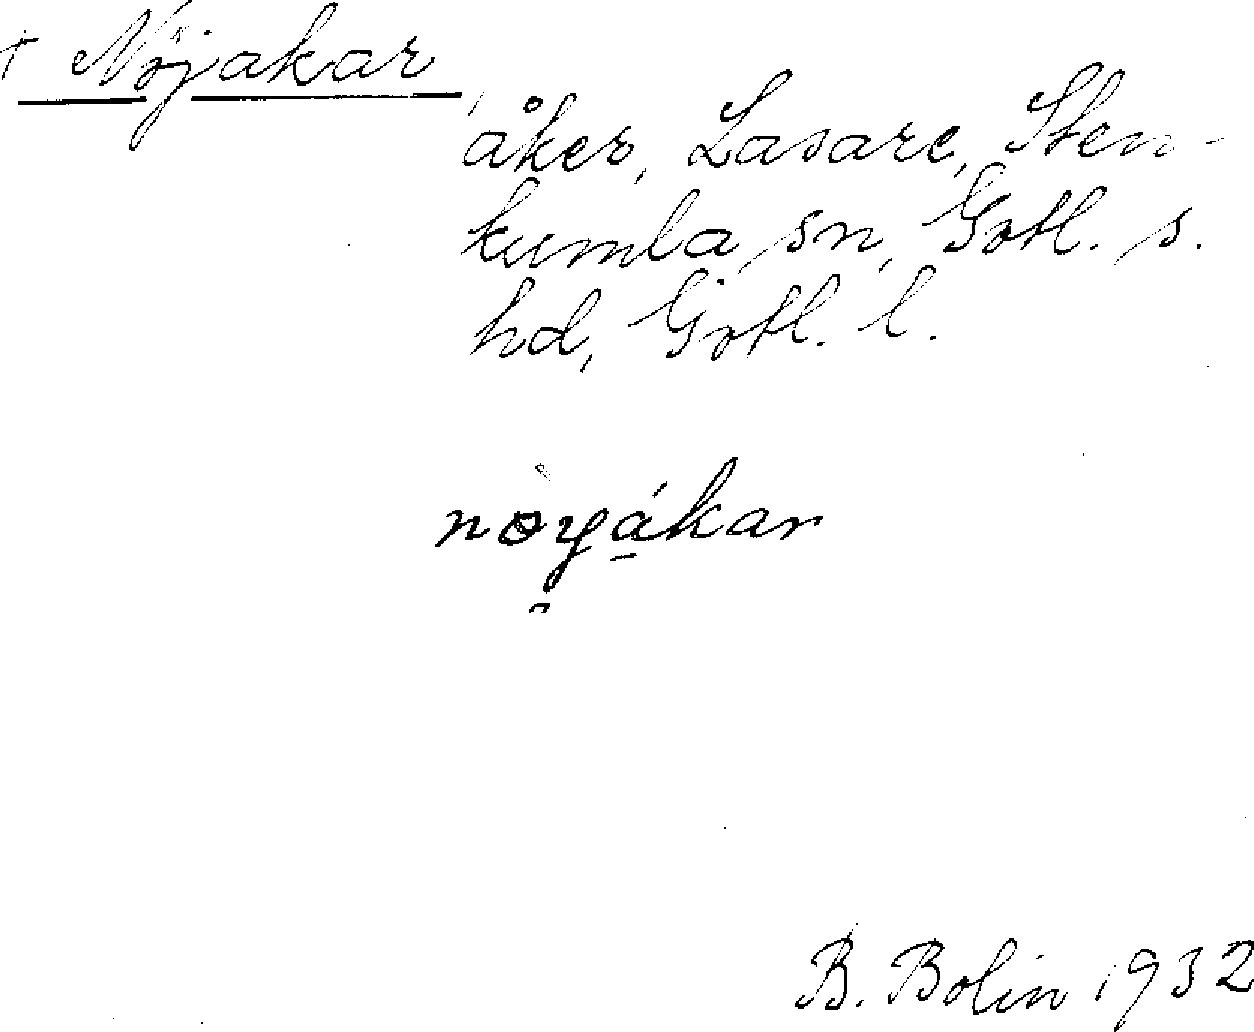 † Nöjakar
åker, Lasare, Sten-
kumla sn, Gotl. s.
hd, Gotl. l.
nòyákar
B. Bolin 1932